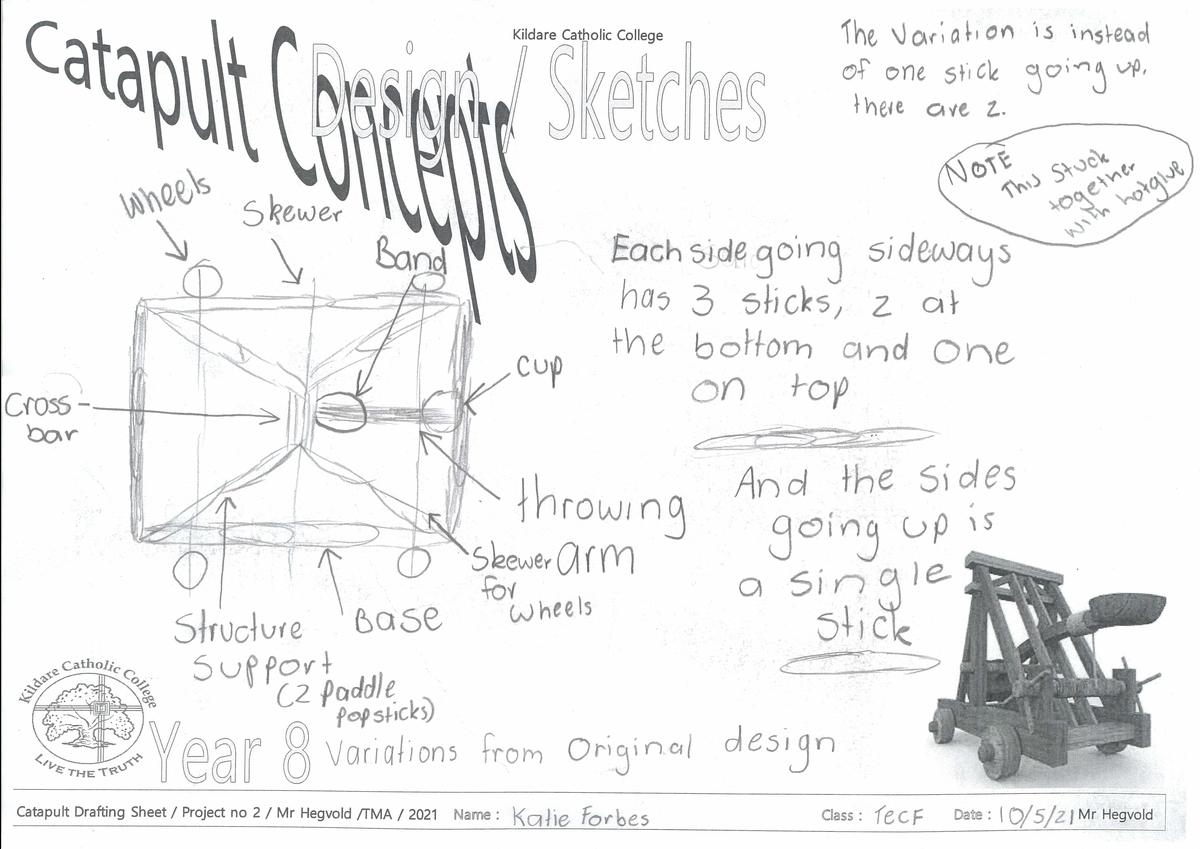 Kildare Catholic College
Catapult Concepts
Design / Sketches
The Variation is instead
of one stick going up,
there are 2.
NOTE
This Stuck
together
with hotglue
Wheels
Skewer
Band
Each side going sideways
has 3 sticks, 2 at
the bottom and one
on top
cup
Cross-
bar
throwing
arm
And the sides
going up is
a single
stick
Skewer
for
wheels
Structure
support
(2 paddle
popsticks)
Base
Kildare Catholic College
LIVE THE TRUTH
Year 8
Variations from Original design
Catapult Drafting Sheet / Project no 2 / Mr Hegvold /TMA / 2021 Name : Katie Forbes Class : TECF Date : 10/5/21 Mr Hegvold